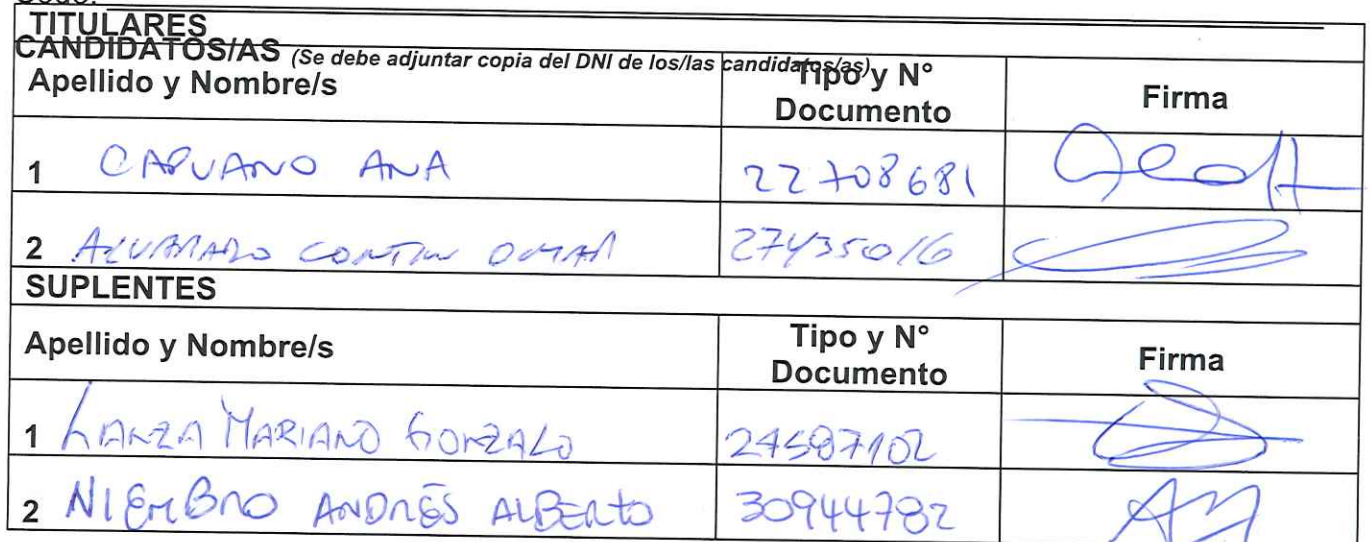 TITULARES
CANDIDATOS/AS (Se debe adjuntar copia del DNI de los/las candidatos/as)
Apellido y Nombre/s Tipo y N° Documento Firma
1 CAPUANO ANA 22708681
2 OMAR 27435016
SUPLENTES
Apellido y Nombre/s Tipo y N° Documento Firma
1 LANZA MARIANO GONZALO 24587102
2 NIEMBRO ANDRÉS ALBERTO 30944782